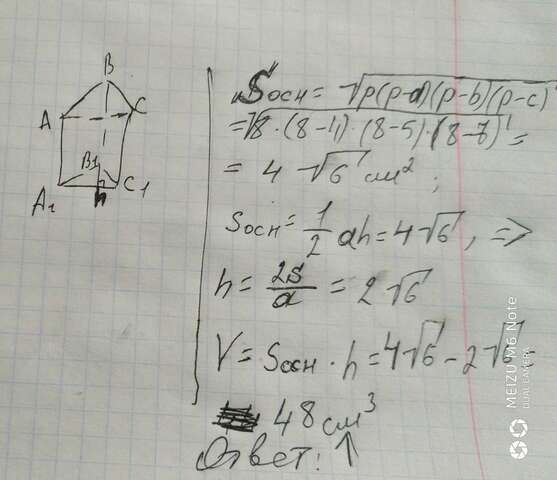 B
A
C
B1
A1
h
C1
Sосн = √p(p-a)(p-b)(p-c)
= √8·(8-4)·(8-5)·(8-7) =
= 4√6 см²;
Sосн = 1/2 ah = 4√6, =>
h = 2S/a = 2√6
V = Sосн · h = 4√6 - 2√6 =
48 см³
Ответ: ↑
MEIZU M6 Note
DUAL CAMERA